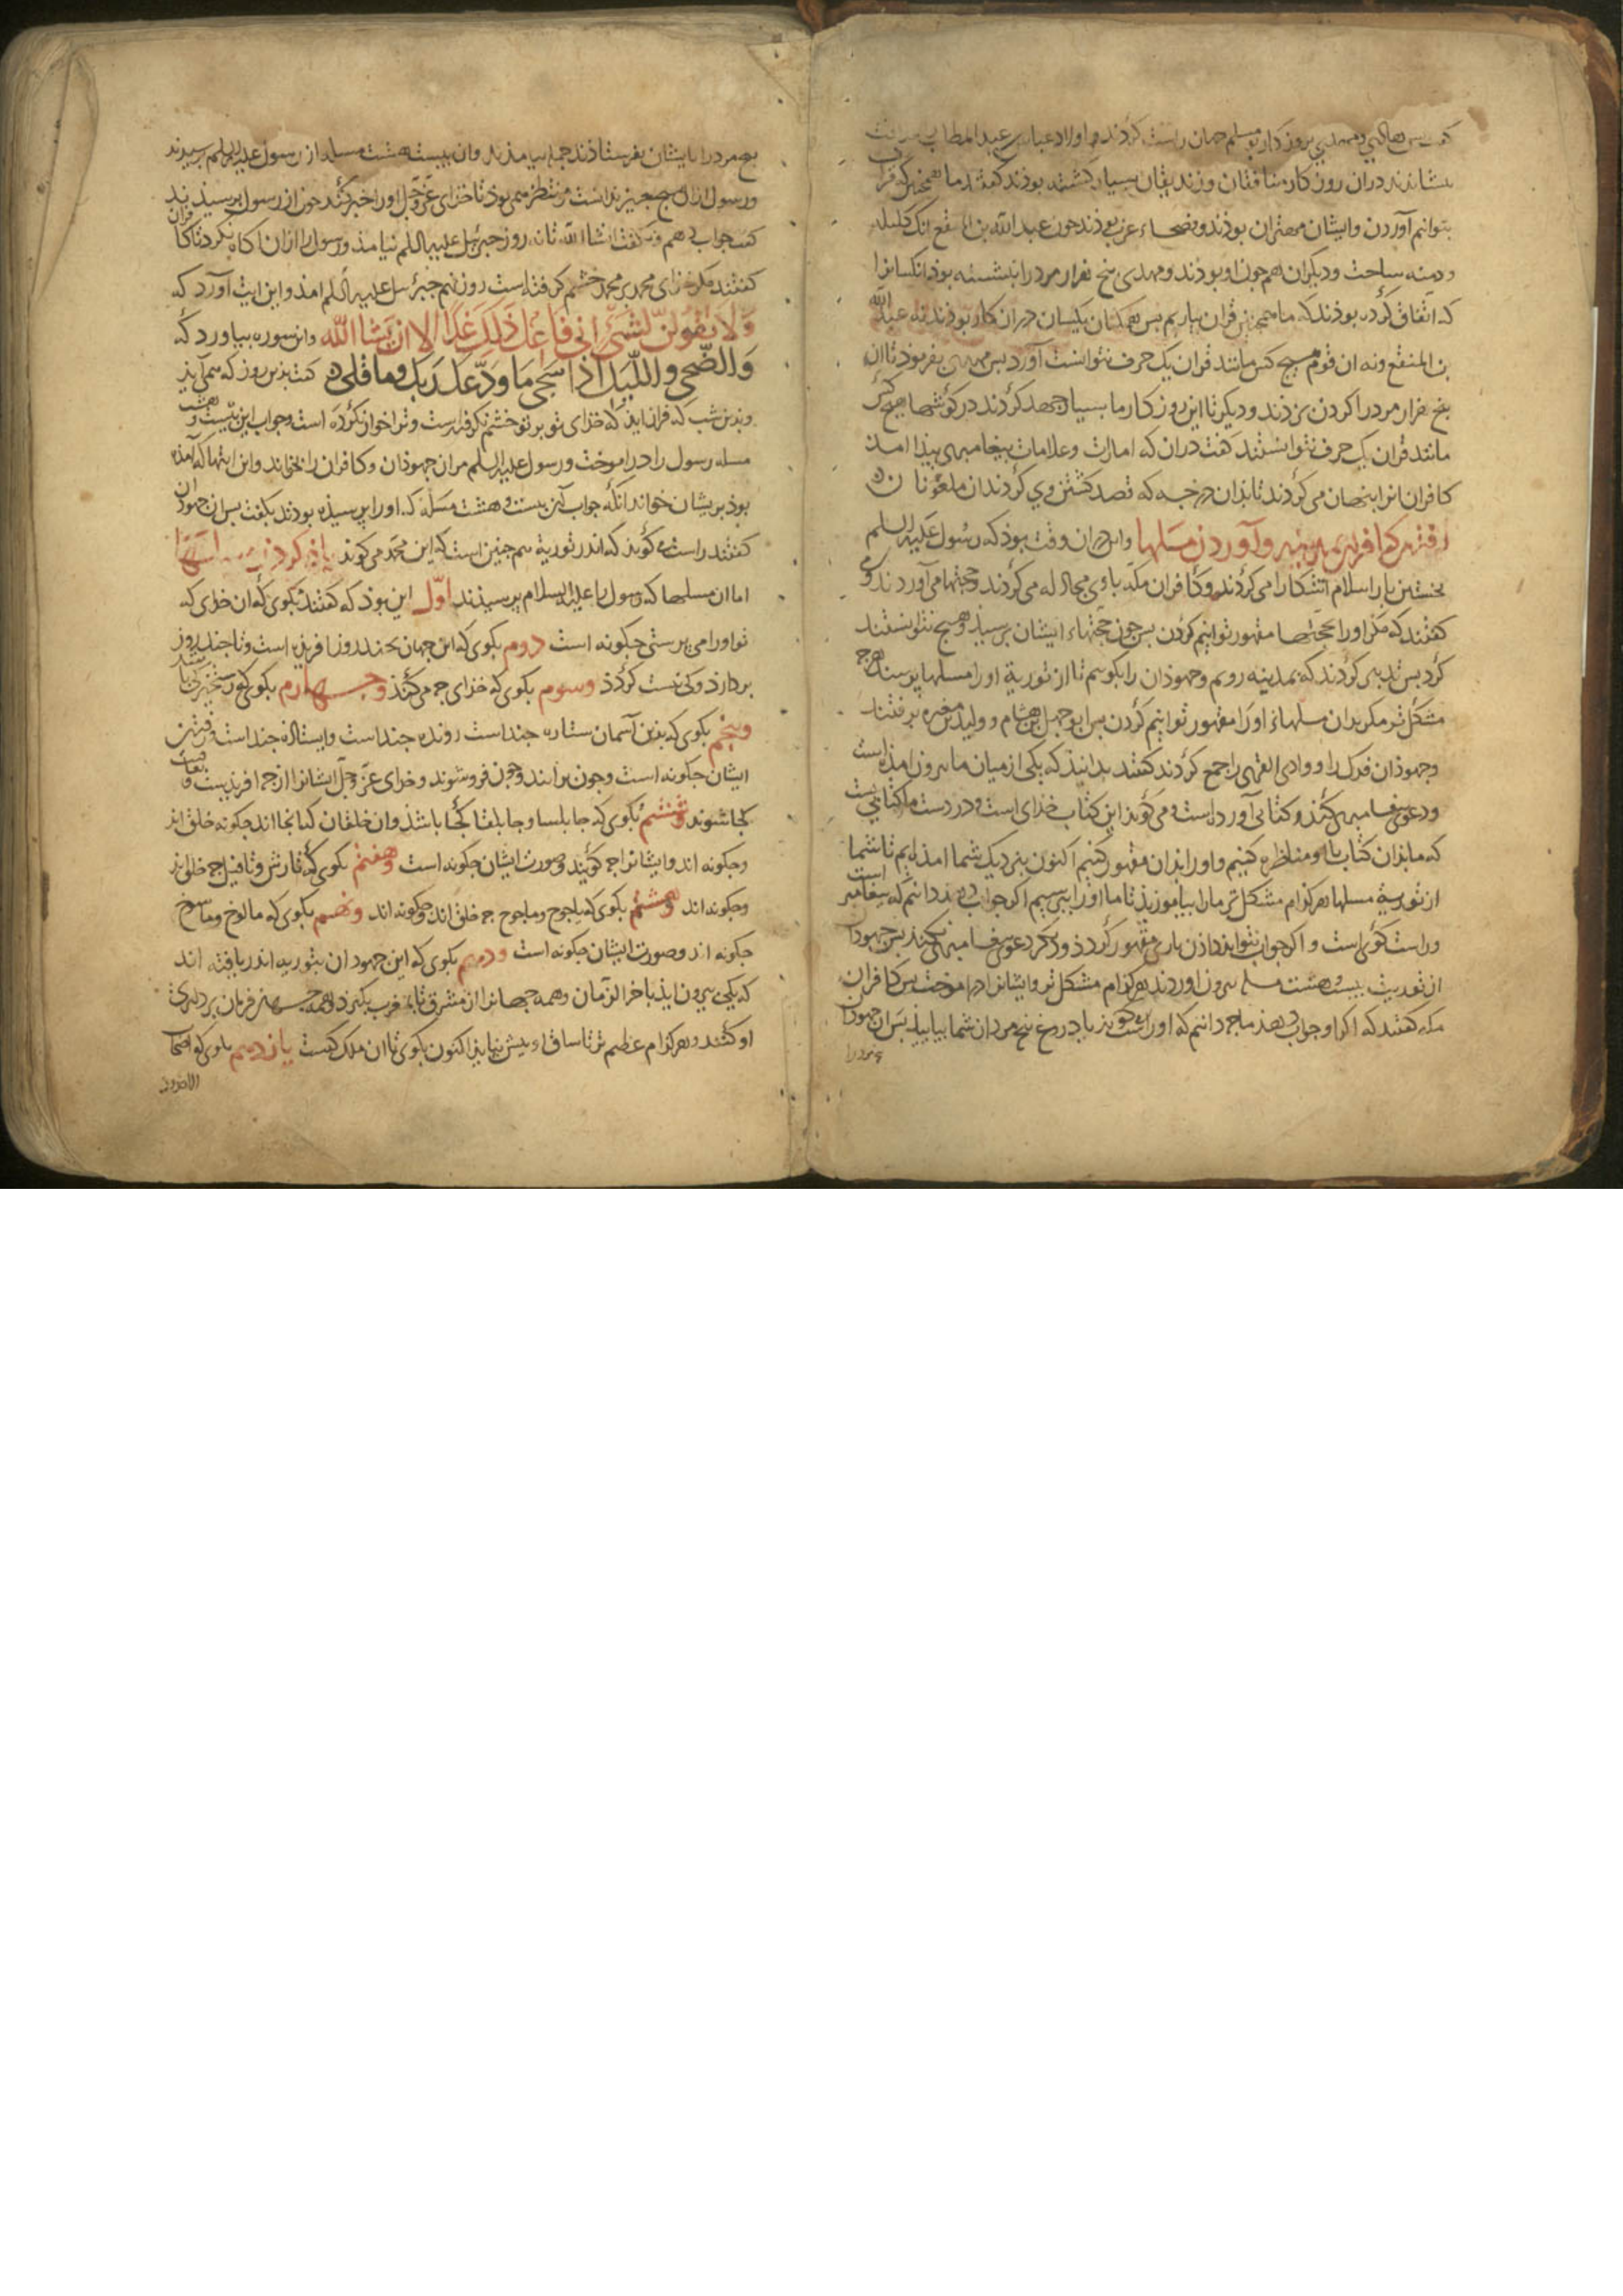 بتوانیم آوردن وایشان مهتران بوذند وفصحاء عرب بوذند جون عبد الله بن المقفع انک کلیله
ودمنه ساخت ودیکران هم جون او بوذند ومهدی بنج هزار مرد را بنشسته بود انکسانرا
که اتفاق کرده بوذند که ما همجنین قران بیاریم بس همکنان یکسان دران کار بوذند نه عبد الله
بن المقفع ونه ان قوم هیج کس مانند قران یک حرف نتوانست آورد بس مهدی بفرموذ تا ان
بنج هزار مرد را کردن بزدند ودیکر تا این روزکار ما بسیار جهد کردند در کوشها هیج کس
مانند قران یک حرف نتوانستند کفت دران که امارات وعلامات بیغامبری بیذا امد
کافران انرا بنهان می کردند تا بدان درجه که قصد کشتن وی کردند ان ملعونان
رفتن کافران بمدینه وآوردن مسلها واین دران وقت بوذ که رسول علیه السلم
نخستین بار اسلام آشکارا می کردند وکافران مکه با وی مجادله می کردند وحجتها می آوردند ومی
کفتند که مکر اورا بحجتها مقهور توانیم کردن بس جون حجتهاء ایشان برسید وهیج نتوانستند
کرد بس تدبیر کردند که بمدینه رویم وجهوذان را بکوییم تا از توریة اورا مسلها برسند هرج
مشکل تر مکر بدان مسلهاء اورا مقهور توانیم کردن بس ابو جهل بن هشام وولید بن مغیره برفتند
وجهوذان فدک را ووادی القری را جمع کردند کفتند بدانیذ که یکی از میان ما بیرون امذه است
ودعوی بیغامبری می کند وکتابی آورده است ومی کوید این کتاب خذای است ودر دست ما کتابی نیست
که ما بذان کتاب با او مناظره کنیم واورا بذان مقهور کنیم اکنون بنزدیک شما امذه ایم تا شما
از توریة مسلها هرکدام مشکل تر مارا بیاموزیذ تا ما اورا ببرسیم اکر جواب دهد دانیم که بیغامبر است
وراست کوی است واکر جواب نتواند داذن باری مقهور کردذ ودیکر دعوی بیغامبری نکند بس جهوذان
از توریت بیست وهشت مسله بیرون اوردند هرکدام مشکل تر وایشانرا در اموخت بس کافران
مکه کفتند که اکر او جواب دهذ ما جه دانیم که او راست می کوید یا دروغ بنج مرد از شما بیاییذ بس ان جهوذان
بنج مرد را
بنج مرد را با یشان بفرستاذند جمله بیامذند وان بیست هشت مسله از رسول علیه السلم برسیدند
ورسول ازان هیج جیز ندانست منتظر همی بوذ تا خذای عز وجل اورا خبر کند جون از رسول برسیذند
کفت جواب دهم ونکفت انشا الله تا نه روز جبرئیل علیه السلم نیامذ ورسول را ازان اکاه نکرد تا کافران
کفتند مکر خذای محمد بر محمد خشم کرفته است روز نهم جبرئیل علیه السلم امذ واین ایت آورد که
وَلَا تَقُولَنَّ لِشَیْءٍ اِنِّی فَاعِلٌ ذٰلِکَ غَدًا اِلَّا اَنْ یَشَاءَ اللّٰه واین سوره بیاورد که
وَالضُّحٰی وَاللَّیْلِ اِذَا سَجٰی مَا وَدَّعَکَ رَبُّکَ وَمَا قَلٰی کفت بذین روز که همی آید
وبذین شب که فراز اید که خذای تو بر تو خشم نکرفته است وترا خوار نکرده است وجواب این بیست وهشت
مسله رسول را در اموخت ورسول علیه السلم مران جهوذان وکافران را بخواند واین ایتها که آمذه
بوذ بر یشان خواند انکه جواب این بیست وهشت مسله که اورا برسیذه بودند بکفت بس ان جهوذان
کفتند راست می کوید که اندر توریة هم جنین است که این محمد می کوید یاذ کردن مسلتها
اما ان مسلها که رسول را علیه السلام برسیذند اوّل این بوذ که کفتند بکوی که ان خذای که
تو اورا می برستی جکونه است دوم بکوی که این جهان بجند روز افریذه است وتا جند روز
بردارد وکی نیست کردذ وسوم بکوی که خذای جه می کند وجهارم بکوی که رستخیز کی باشد
وبنجم بکوی که بذین آسمان ستاره جنداست رونده جنداست وایستاذه جنداست ورفتن
ایشان جکونه است وجون برآیند وجون فروشوند وخذای عز وجل ایشانرا از جه افریذست
کجا شوند وششم بکوی که جابلسا وجابلقا کجا باشد وان خلقان که انجا اند جکونه خلق اند
وجکونه اند وایشانرا جه کویند وصورت ایشان جکونه است وهفتم بکوی که تارش وتافیل جه خلق اند
وجکونه اند وهشتم بکوی که یاجوج وماجوج جه خلق اند وجکونه اند ونهم بکوی که مالوخ وماسوخ
جکونه اند وصورت ایشان جکونه است ودهم بکوی که این جهودان بتوریه اندر یافته اند
که یکی بیرون ایذ باخر الزمان وهمه جهانرا از مشرق تا بمغرب بکیرد وهمه جهان فرمان برداری
او کنند وهرکدام عظیم تر تا ساق بیش نیاید اکنون بکوی تا ان ملک کیست یازدهم بکوی که اصحاب
الاخدود